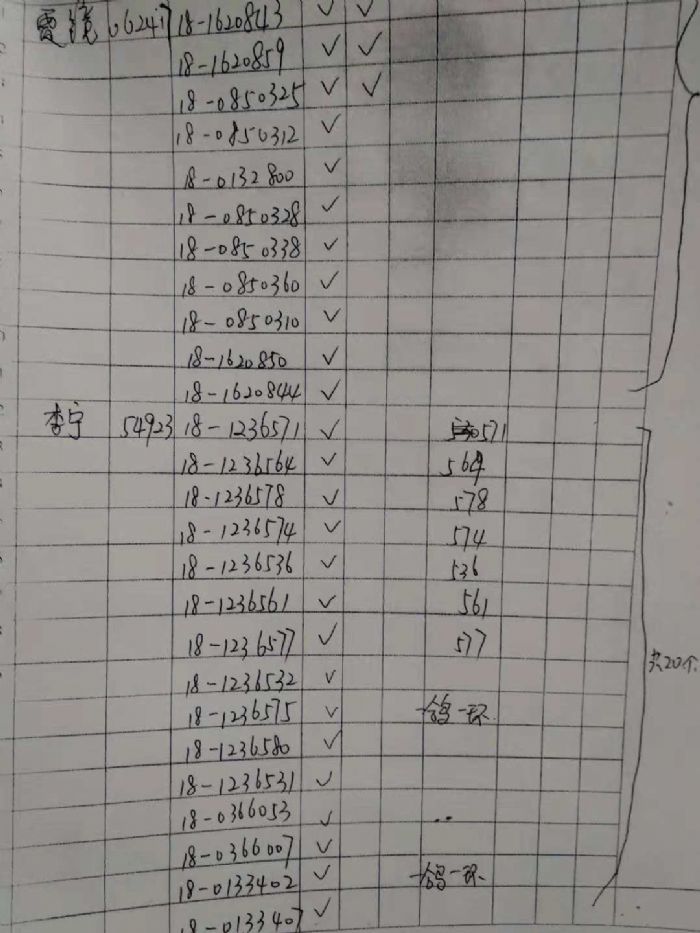 霞镜 06247 18-1620843 ✓ ✓
18-1620859 ✓ ✓
18-0850325 ✓ ✓
18-0850312 ✓
18-0132800 ✓
18-0850328 ✓
18-0850338 ✓
18-0850360 ✓
18-0850310 ✓
18-1620850 ✓
18-1620844 ✓
李宁 54923 18-1236571 ✓ 571
18-1236564 ✓ 564
18-1236578 ✓ 578
18-1236574 ✓ 574
18-1236536 ✓ 536
18-1236561 ✓ 561
18-1236577 ✓ 577
共20个
18-1236532 ✓
18-1236575 ✓ 一鸽一环
18-1236580 ✓
18-1236531 ✓
18-0366053 ✓ ..
18-0366007 ✓
18-0133402 ✓ 一鸽一环
18-0133407 ✓